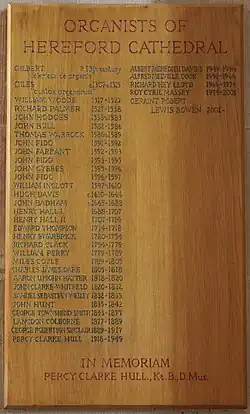 ORGANISTS OF
HEREFORD CATHEDRAL
GILBERT ? 13th century
clericus de organis
GILES c.1307-1313
custos organorum
WILLIAM WODE 1517-1522
RICHARD PALMER 1527-1538
JOHN HODGES 1538-1583
JOHN BULL 1582-1586
THOMAS WARROCK 1586-1589
JOHN FIDO 1591-1592
JOHN FARRANT 1592-1593
JOHN FIDO 1593-1593
JOHN GYBBES 1593-1596
JOHN FIDO 1596-1597
WILLIAM INGLOTT 1597-1610
HUGH DAVIS c.1630-1644
JOHN BADHAM 1660-1688
HENRY HALL I 1688-1707
HENRY HALL II 1707-1714
EDWARD THOMPSON 1714-1718
HENRY SWARBRICK 1720-1754
RICHARD CLACK 1754-1779
WILLIAM PERRY 1779-1789
MILES COYLE 1789-1805
CHARLES JAMES DARE 1805-1818
AARON UPJOHN HAYTER 1818-1820
JOHN CLARKE-WHITFELD 1820-1832
SAMUEL SEBASTIAN WESLEY 1832-1835
JOHN HUNT 1835-1842
GEORGE TOWNSHEND SMITH 1843-1877
LANGDON COLBORNE 1877-1889
GEORGE ROBERTSON SINCLAIR 1889-1917
PERCY CLARKE HULL 1918-1949
ALBERT MEREDITH DAVIES 1949-1956
ALFRED MELVILLE COOK 1956-1966
RICHARD HEY LLOYD 1966-1974
ROY CYRIL MASSEY 1974-2001
GERAINT ROBERT
LEWIS BOWEN 2001-
IN MEMORIAM
PERCY CLARKE HULL, Kt. B., D. Mus.